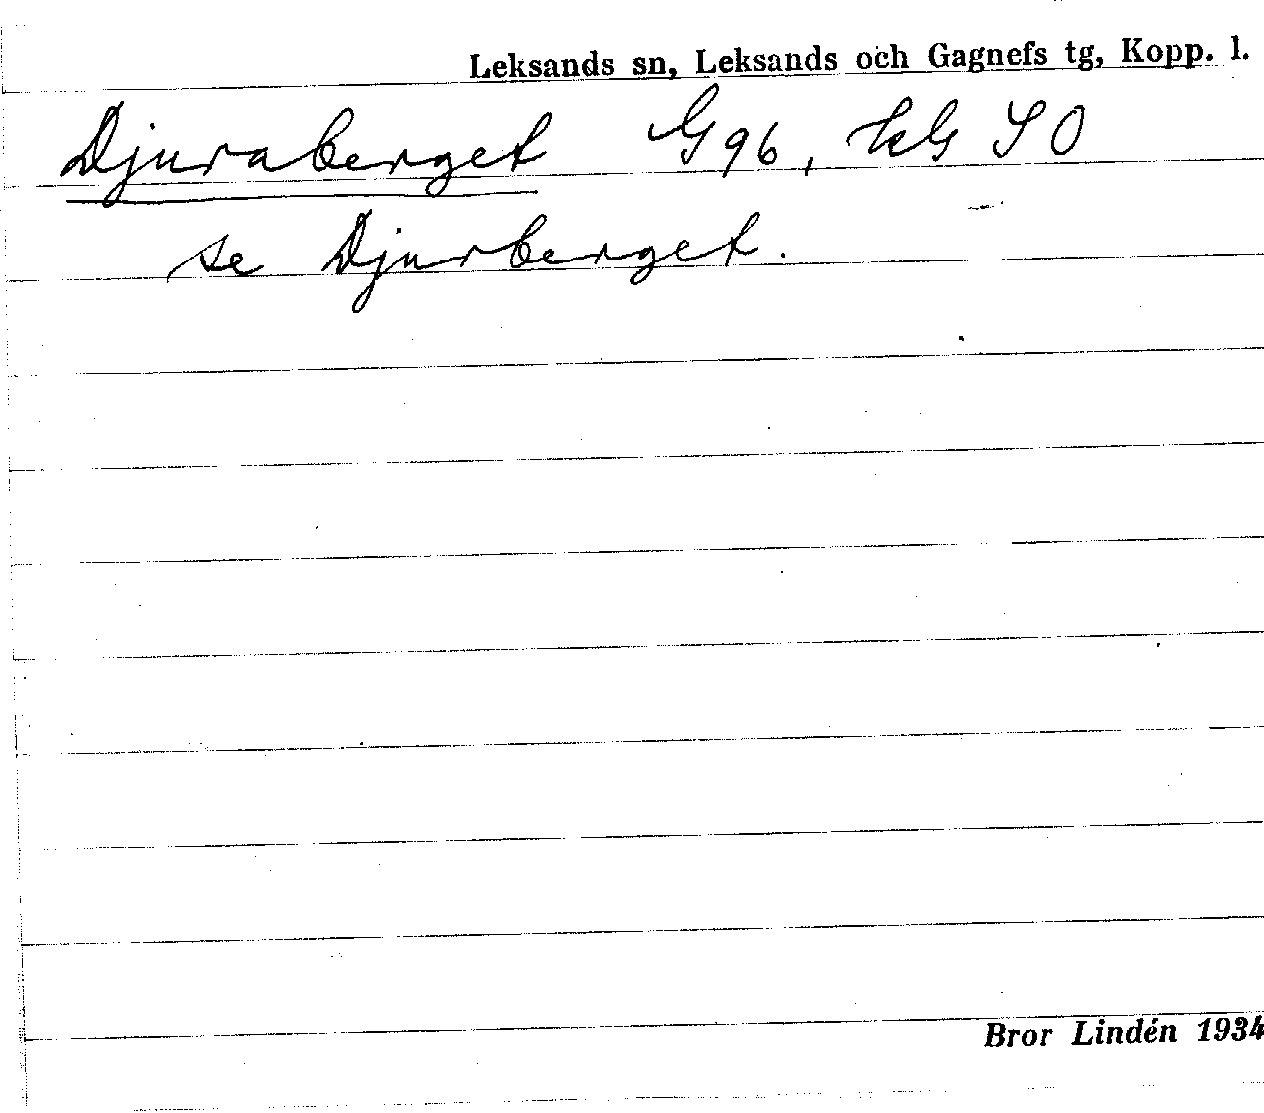 Leksands sn, Leksands och Gagnefs tg, Kopp. l.
Djuraberget G 96, SO
se Djurberget.
Bror Lindén 1934